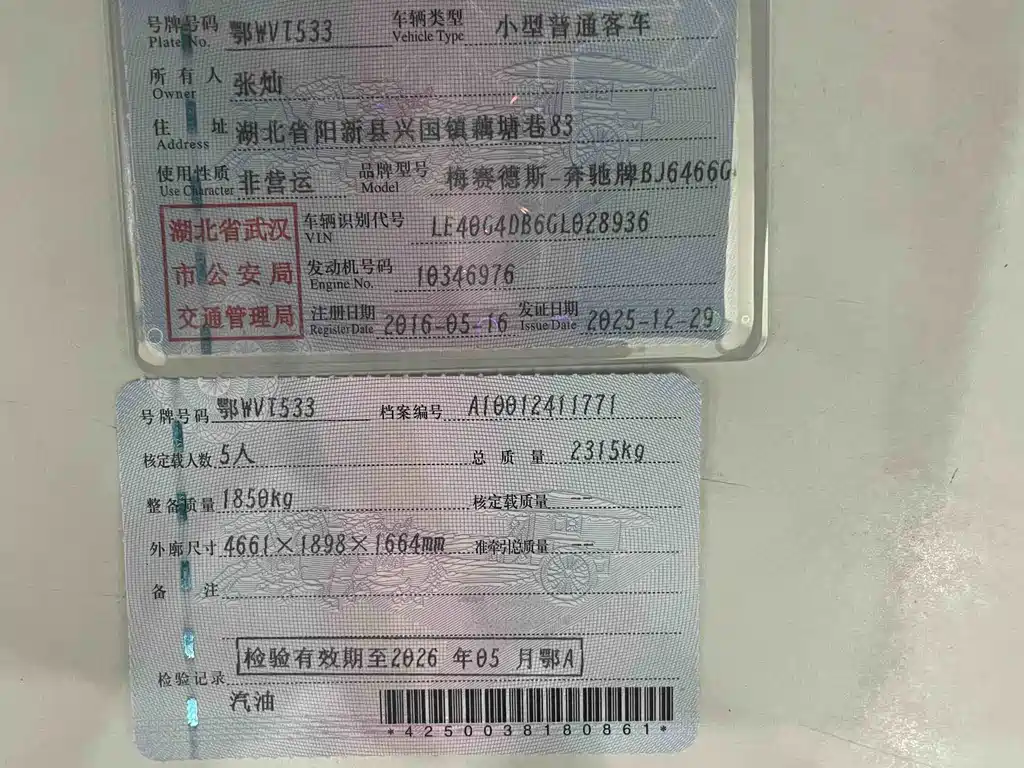 号牌号码 鄂WVT533 车辆类型 小型普通客车
Plate No. Vehicle Type
所有人 张灿
Owner
住址 湖北省阳新县兴国镇藕塘巷83
Address
使用性质 非营运 品牌型号 梅赛德斯-奔驰牌BJ6466G
Use Character Model
湖北省武汉
市公安局
交通管理局
车辆识别代号 LE40G4DB6GL028936
VIN
发动机号码 10346976
Engine No.
注册日期 2016-05-16 发证日期 2025-12-29
Register Date Issue Date
号牌号码 鄂WVT533 档案编号 A10012411771
核定载人数 5人 总质量 2315kg
整备质量 1850kg 核定载质量 --
外廓尺寸 4661×1898×1664mm 准牵引总质量 --
备注
检验有效期至2026 年05 月鄂A
检验记录
汽油
*4250038180861*